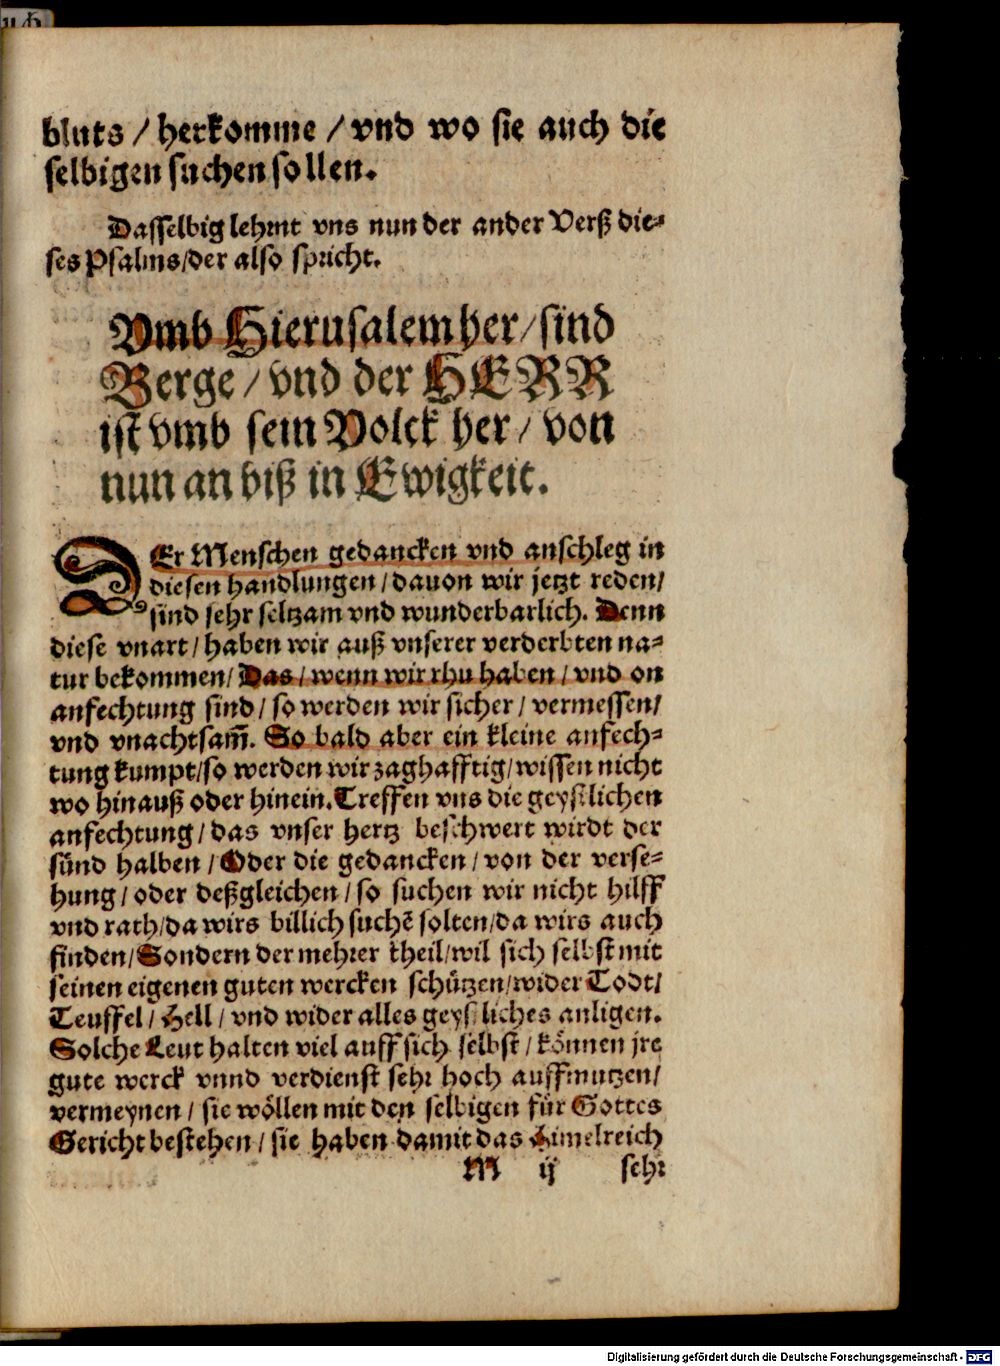 bluts / herkomme / vnd wo sie auch die
selbigen suchen sollen.
Dasselbig lehrnt vns nun der ander Verß die-
ses Psalms/der also spricht.
Vmb Hierusalem her/ sind
Berge / vnd der HERR
ist vmb sein Volck her / von
nun an biß in Ewigkeit.
DEr Menschen gedancken vnd anschleg in
diesen handlungen / dauon wir jetzt reden/
sind sehr seltzam vnd wunderbarlich. Denn
diese vnart / haben wir auß vnserer verderbten na-
tur bekommen/ Das / wenn wir rhu haben / vnd on
anfechtung sind / so werden wir sicher / vermessen/
vnd vnachtsam̃. So bald aber ein kleine anfech-
tung kumpt/so werden wir zaghafftig/wissen nicht
wo hinauß oder hinein. Treffen vns die geystlichen
anfechtung / das vnser hertz beschwert wirdt der
sünd halben / Oder die gedancken / von der verse-
hung / oder deßgleichen / so suchen wir nicht hilff
vnd rath/da wirs billich suchẽ solten/da wirs auch
finden/Sondern der mehrer theil/wil sich selbst mit
seinen eigenen guten wercken schützen/wider Todt/
Teuffel / Hell / vnd wider alles geystliches anligen.
Solche Leut halten viel auff sich selbst / können jre
gute werck vnnd verdienst sehr hoch auffmutzen/
vermeynen / sie wöllen mit den selbigen für Gottes
Gericht bestehen / sie haben damit das Himelreich
M ij sehr
Digitalisierung gefördert durch die Deutsche Forschungsgemeinschaft - DFG